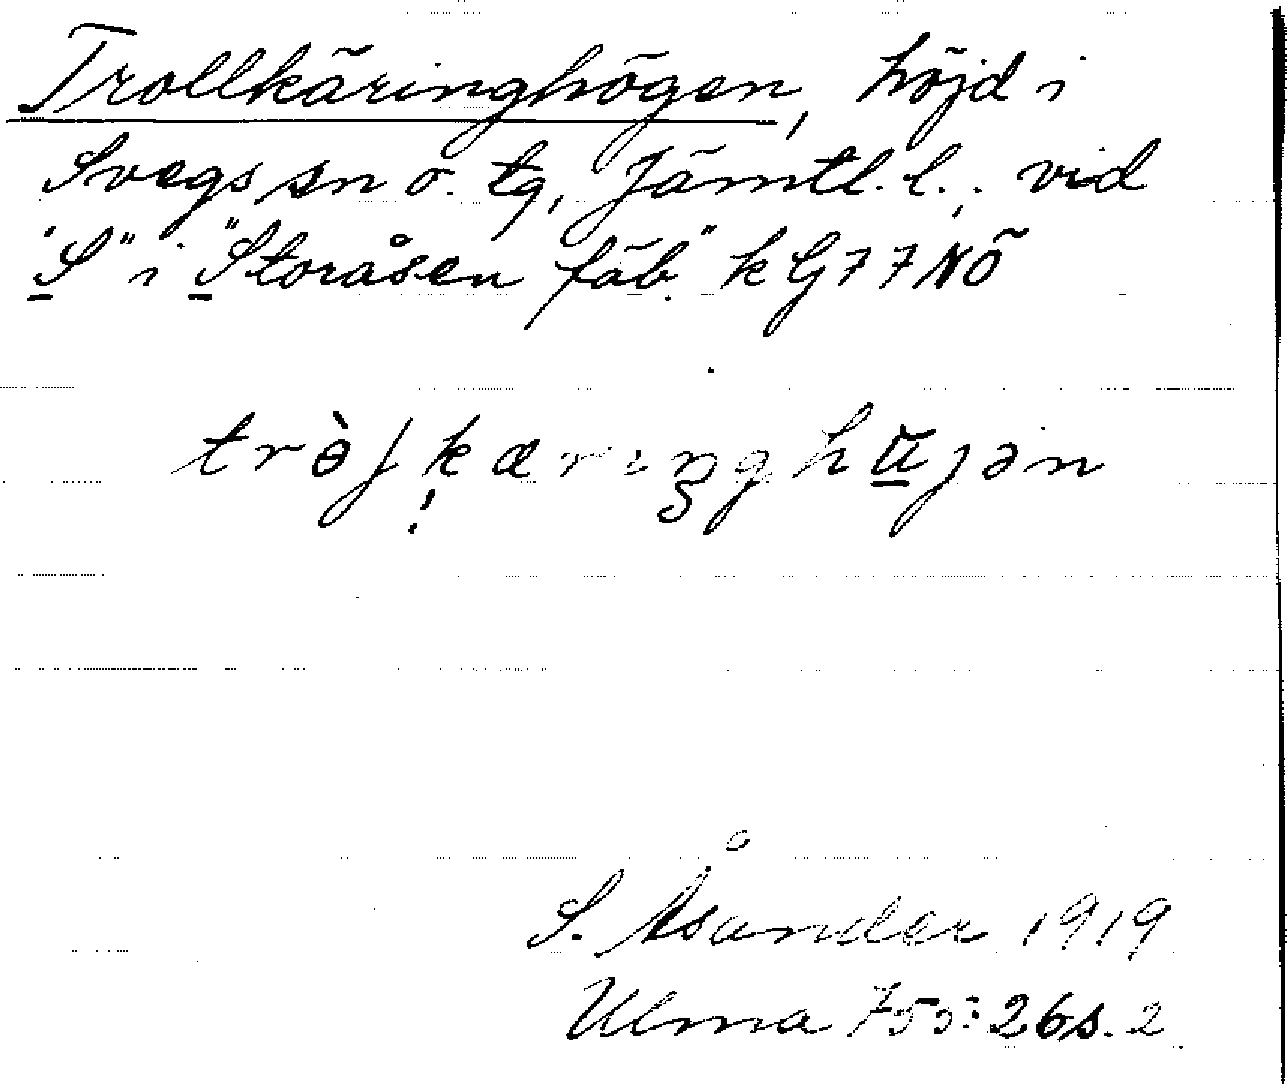 Trollkäringhögen, höjd i
Svegs sn o. tg, Jämtl. l., vid
"S" i "Storåsen fäb." k G77NÖ
S. Åsander 1919
Ulma 26 s. 2